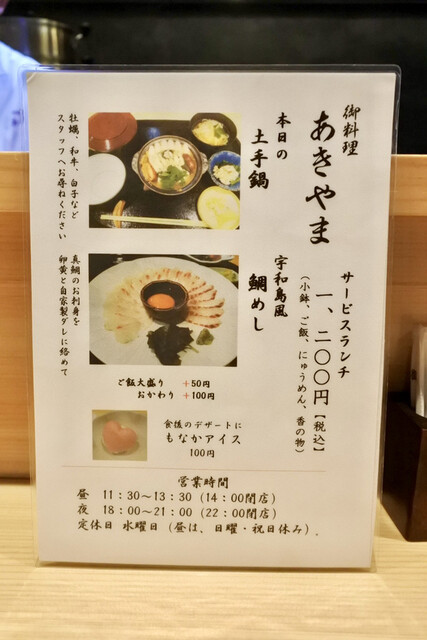 御料理
あきやま
サービスランチ
一、二〇〇円【税込】
（小鉢、ご飯、にゅうめん、香の物）
本日の
土手鍋
牡蠣、和牛、白子など
スタッフへお尋ねください
宇和島風
鯛めし
真鯛のお刺身を
卵黄と自家製ダレに絡めて
ご飯大盛り ＋50円
おかわり ＋100円
食後のデザートに
もなかアイス
100円
営業時間
昼 11：30～13：30（14：00閉店）
夜 18：00～21：00（22：00閉店）
定休日 水曜日（昼は、日曜・祝日休み）.